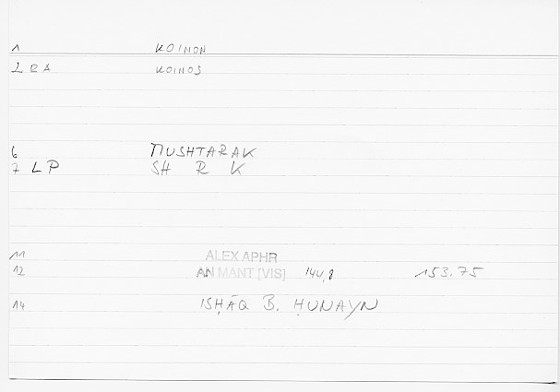 1 KOINON
2 EA KOINOS
6 MUSHTARAK
7 LP SH R K
11 ALEX APHR
12 AN MANT [VIS] 144,8 153.75
14 ISḤĀQ B. ḤUNAYN